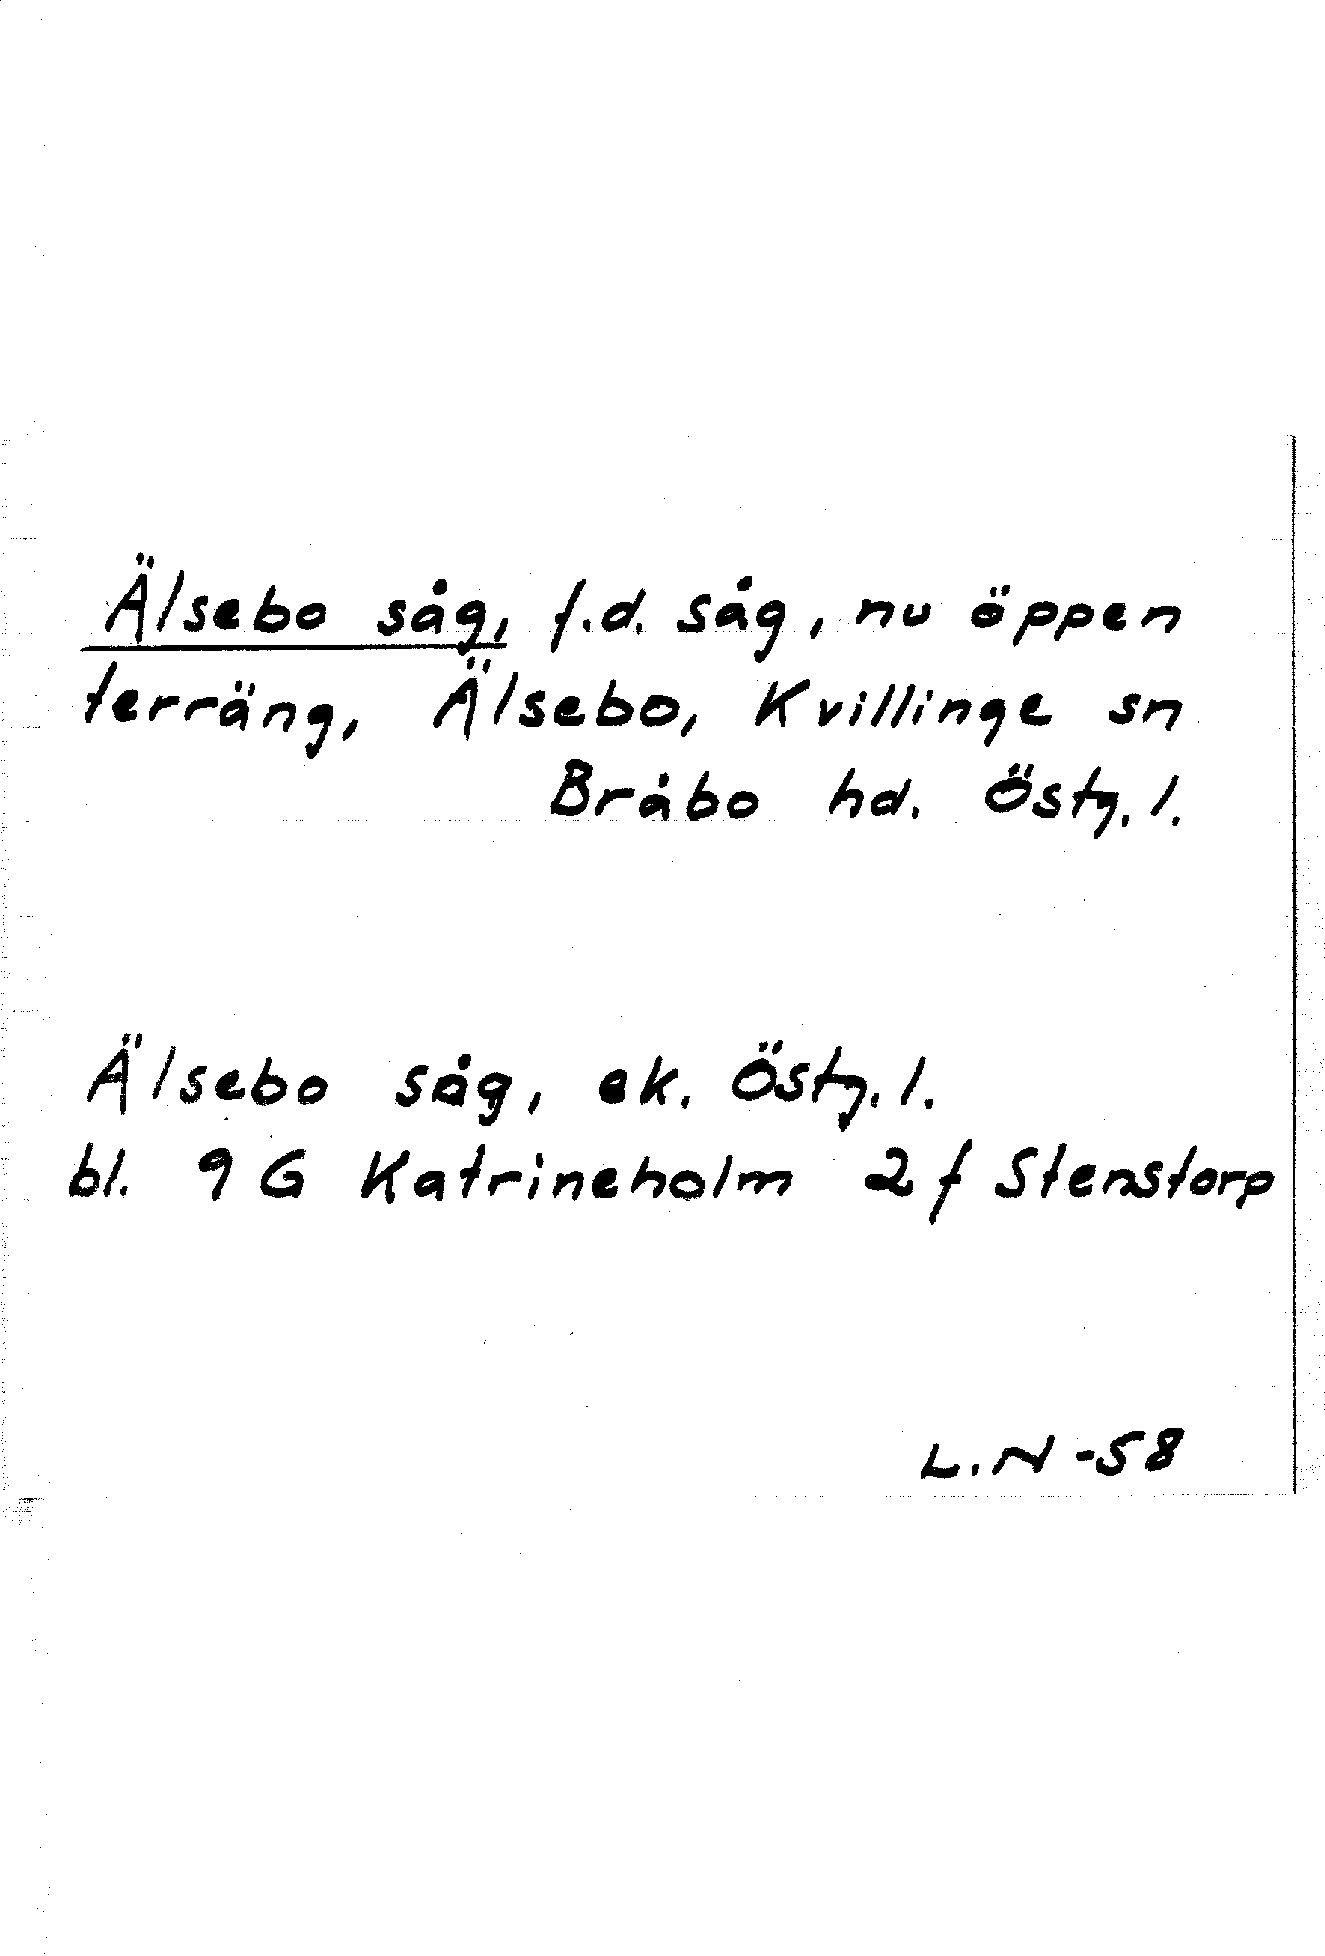 Älsebo såg, f.d. såg, nu öppen
terräng, Älsebo, Kvillinge sn
Bråbo hd. Östg. l.
Älsebo såg, ek. Östg. l.
bl. 9 G Katrineholm 2 f Stenstorp
L.N -58